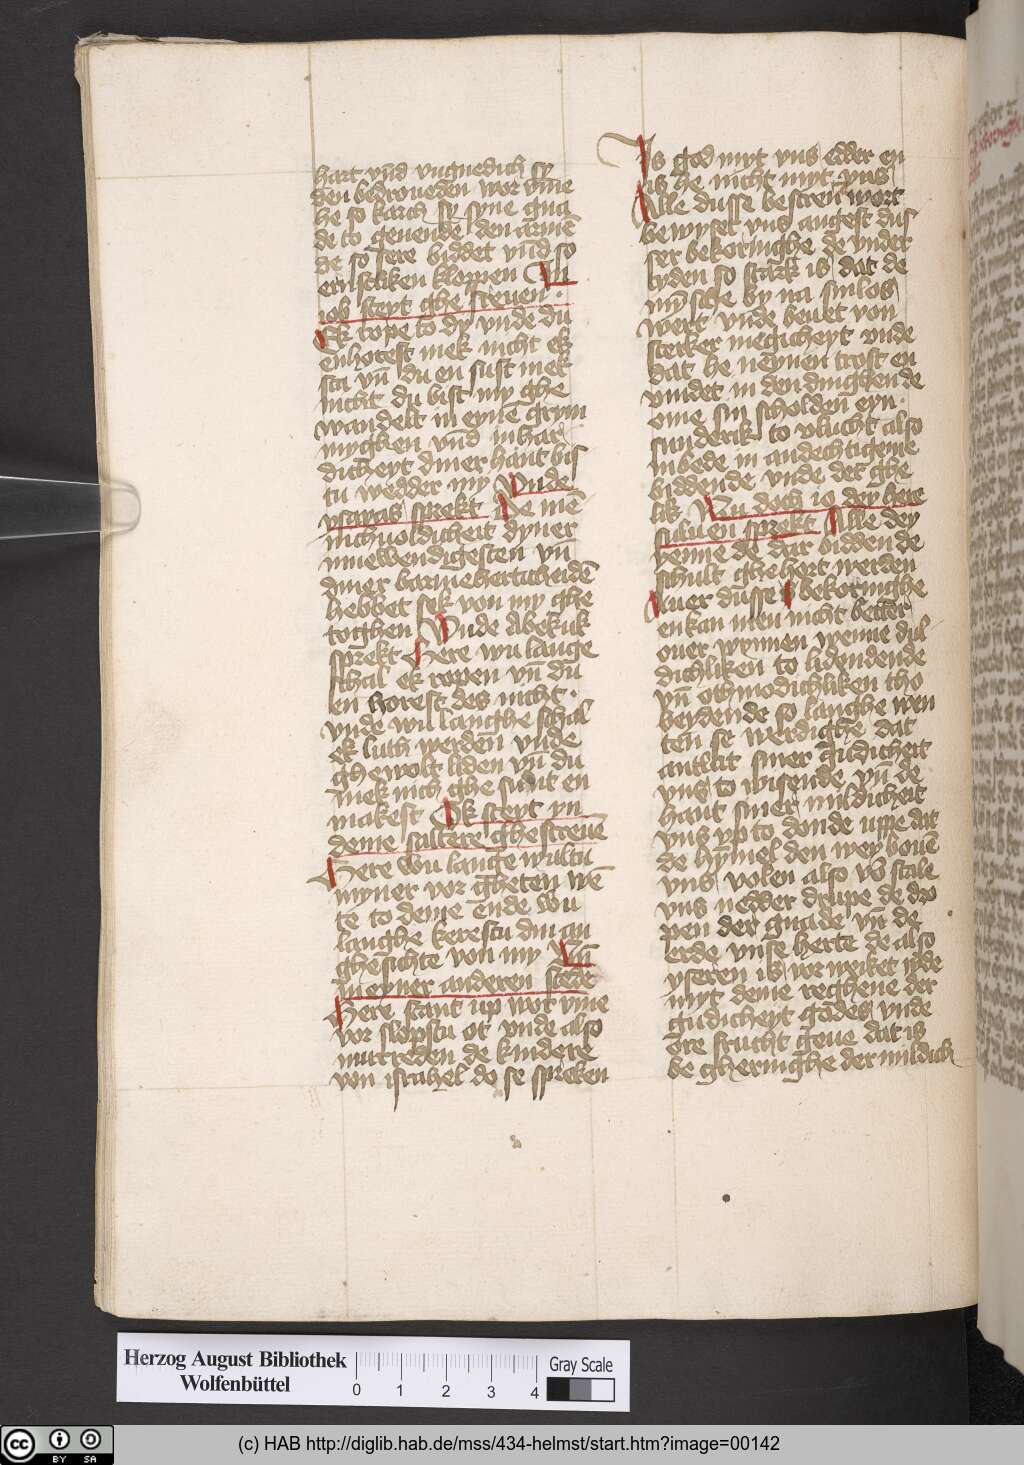 hart vnd vngnedich sy
den bedroueden wor vm̄e
he so karch sy syne gna
de to geuende den armē
de so sere biddet vnd so
ernstliken kloppen In
iob steyt ghe screuen ·
Ek rope to dy vnde du
enhorest mek nicht ek
sta vn̄ du en sust mek
nicht du bist my ghe
wandelt in eynē grym
myghen vnd in har
dicheyt diner hant bis
tu wedder my Vnde
ysayas sprekt De mē
nichuoldicheit dyner
innewendigesten vn̄
diner barmeherticheidē
hebbet sek von my ghe
toghen Vnde Abekuk
sprekt Here wu lange
schal ek ropen vn̄ du
en horest des nicht ·
vnde wu langhe schal
ek luth werden vnde
ghewolt liden vn̄ du
mek nich ghe sunt en
makest Ok steyt yn
deme saltere ghe screue
Here wu lange wultu
myner vor gheten wē
te to deme ende wu
langhe kerestu din an
ghesichte von my Vn̄
in eyner anderen stede
Here stant up wor vme
vor slopstu ot vnde also
murreden de kindere
von israhel do se spreken
Is god myt vns edder en
is he nicht myt vns
Alle dusse bescreuē wort
bewyset vns angest dus
ser bekoringhe de vnder
tyden so stark is dat de
mīsche by na sinlos
wert vnde beuet von
sterker megicheyt vnde
dat he neynen trost en
vindet in den dinghen de
ome sin scholden eyn
sunderk to vlucht also
in bede in andechtigeme
biddende vnde der ghe
lik Nu doch io dey here
suluen sprekt Alle dey
yenne de dar bidden de
schult ghe hort werden
Auer dusse bekoringhe
en kan men nicht better
ouer wynnen wenne dul
dichliken to lidendende
vn̄ othmodichliken tho
beydende so langhe wen
ten se werdighe dat
antlat siner gudicheit
vns to wisende vn̄ de
hant siner mildicheit
vns vp to donde uppe dat
de hymel den wey bouē
vns volen also vō stale
vns nedder drupe de dro
pen der gnade vn̄ de
erde vnse herte de also
yseren is vor weiket wde
myt deme reghene der
gudicheyt godes vnde
ore frucht geue dat is
de gheringhe der mildich
Herzog August Bibliothek
Wolfenbüttel
0 1 2 3 4
Gray Scale
(c) HAB http://diglib.hab.de/mss/434-helmst/start.htm?image=00142
cc BY SA